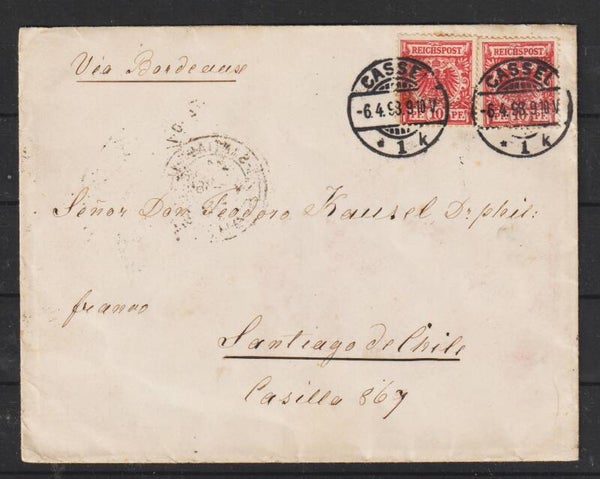 Via Bordeaux
REICHSPOST REICHSPOST
PF 10 PF 10 PF
CASSEL
-6.4.98.9-10V.
* 1 k
CASSEL
-6.4.98.9-10V.
* 1 k
Señor Don Teodoro Kausel Dr. phil:
franco
Santiago de Chile
Casilla 867